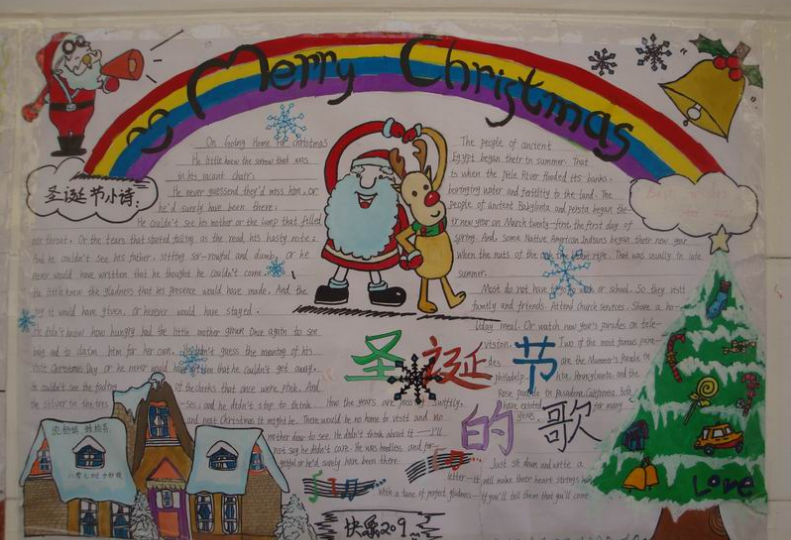 Merry Christmas
圣诞节小诗:
On Going Home for christmas
He little knew the sorrow that was
in his vacant chair;
He never guessend they'd miss him, or
he'd surely have been there;
He couldn't see his mother or the lump that filled
her throat, Or the tears that started falling as she read his hasty note;
And he couldn't see his father, sitting sor-rowful and dumb, or he
never would have written that he thought he couldn't come.
He little knew the gladness that his presence would have made, And the
joy it would have given, or he never would have stayed.
He didn't know how hungry had the little mother grown Once again to see
baby and to claim him for her own.
He didn't guess the meaning of his
visit Christmas Day or he never would have written that he couldn't get away.
He couldn't see the fading of the cheeks that once were pink, And
the silver in the tres -ses, and he didn't stop to think
How the years are passing swiftly,
and next Christmas it might be. There would be no home to visit and no
mother dear to see. He didn't think about it — I'll
not say he didn't care. He was heedless and for-
getful or he'd surely have been there.
The people of ancient
Egypt began their in summer. That
is when the Nile River flooded its banks,
boringing water and fertility to the land. The
people of ancient Babylonia and persia began the-
ir new year on March twenty-first the first day of
spring. And, some Native American Indians began their new year
when the nuts of the oak ripe. That was usually in late
summer.
Most do not have to go to work or school. So they visit
family and friends. Attend church services. Share a ho-
liday meal. Or watch new year's parades on tele-
vision. Two of the most famous para-
des are the Mummer's Parade in
philadelphia, Pennsylvania, and the
Rose parade in Pasadena California. both
have existed for many
years.
圣诞节
的歌
Just sit down and write a
letter—it will make their heart strings hum
With a tune of perfect gladness—if you'll tell them that you'll come
快乐209
Love